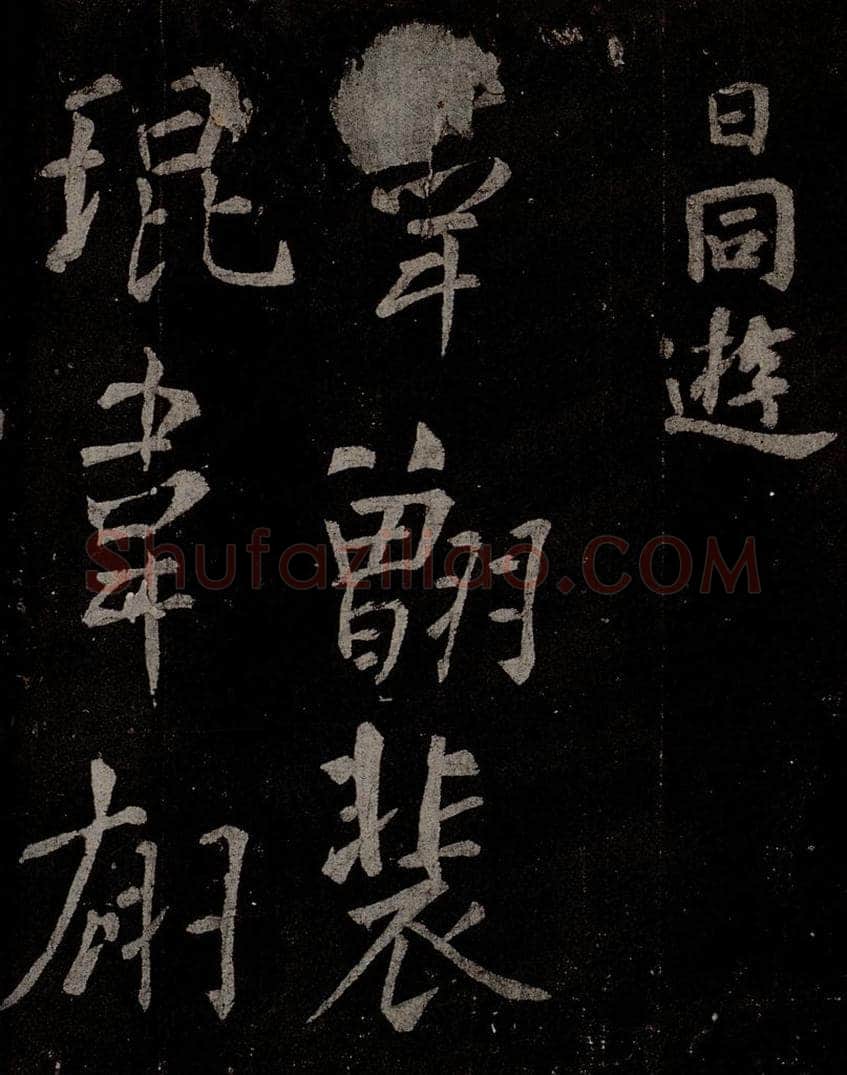 日同遊
䎖裴
琨韋翃
Shufaziliao.COM